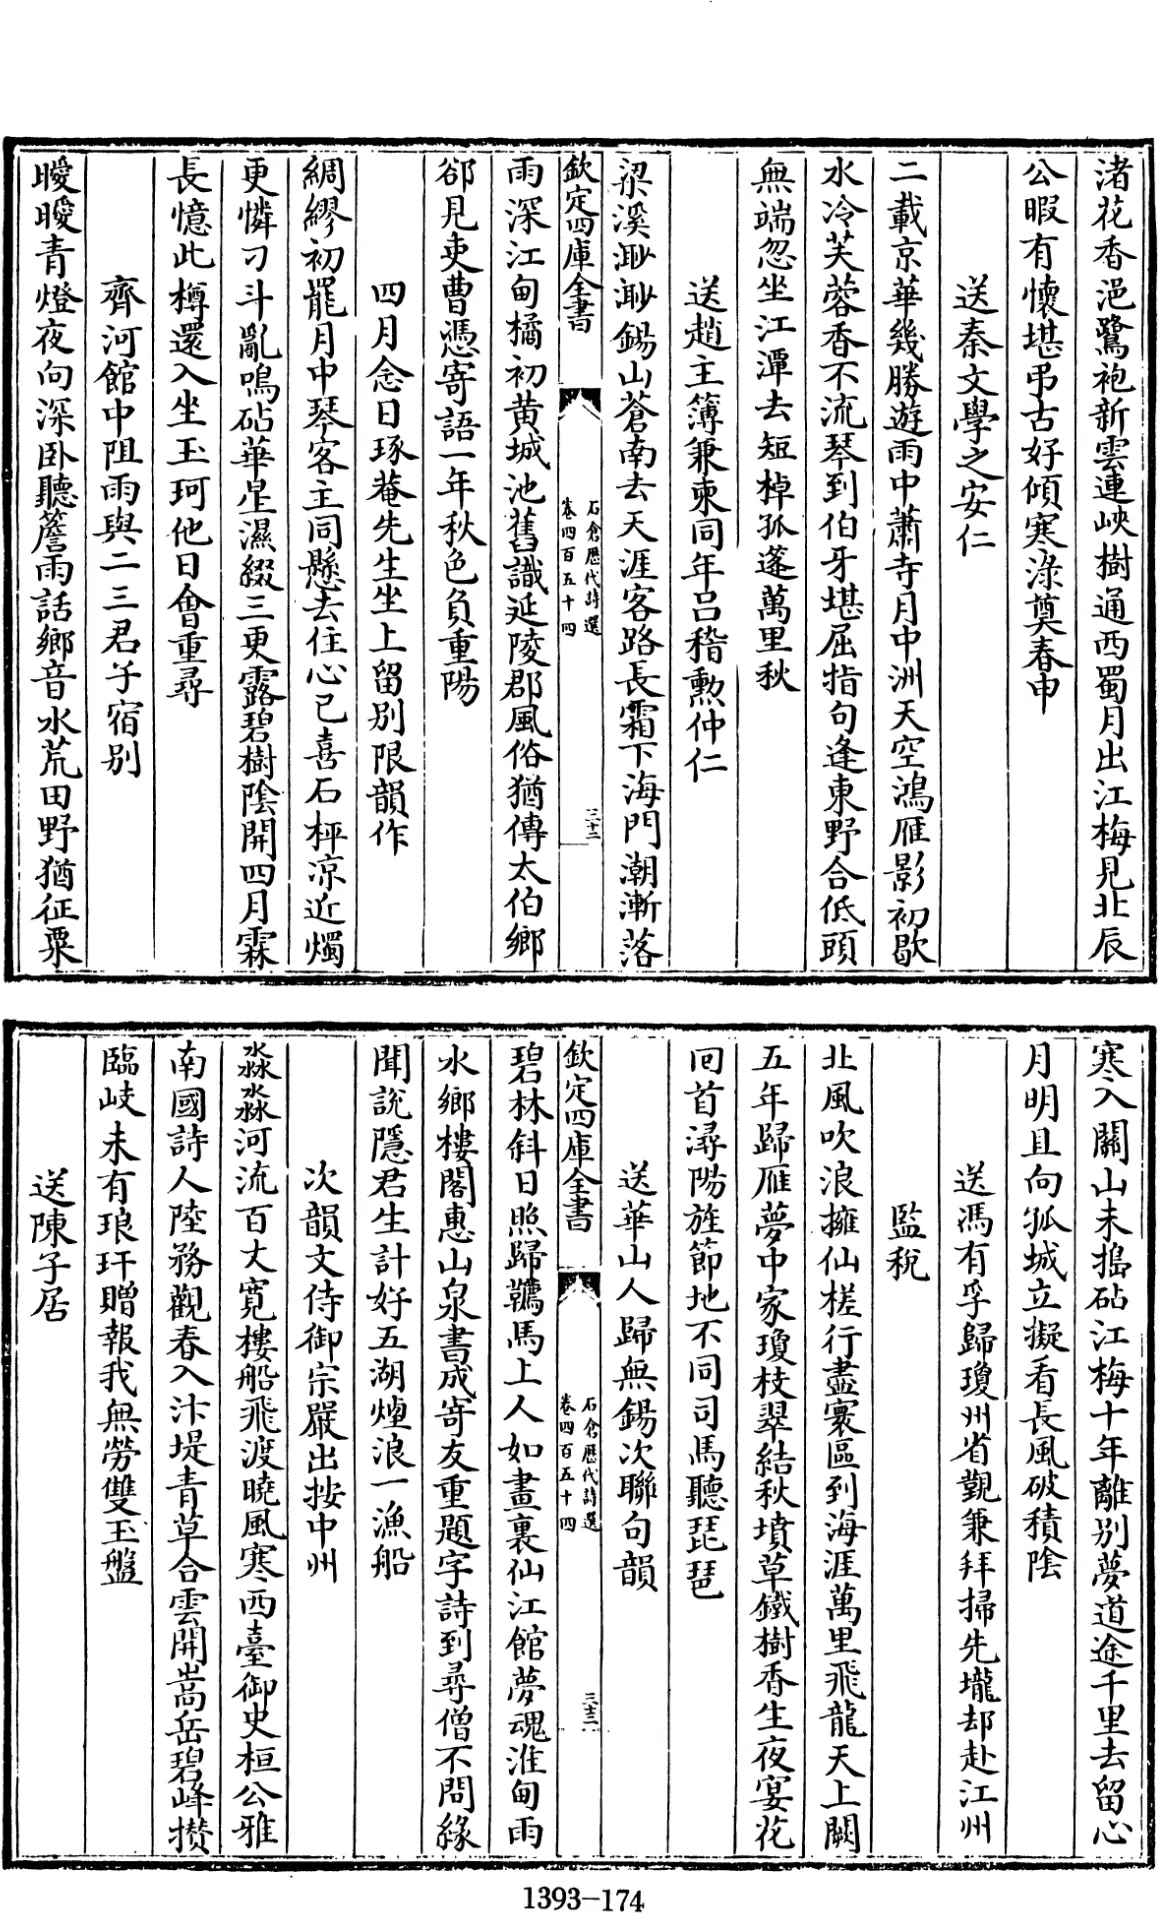 渚花香浥鷺袍新雲連峽樹通西蜀月出江梅見北辰
公暇有懷堪弔古好傾寒淥奠春申
送秦文學之安仁
二載京華幾勝遊雨中蕭寺月中洲天空鴻雁影初歇
水冷芙蓉香不流琴到伯牙堪屈指句逢東野合低頭
無端忽坐江潭去短棹孤蓬萬里秋
送趙主簿兼柬同年呂稽勲仲仁
梁溪渺渺錫山蒼南去天涯客路長霜下海門潮漸落
欽定四庫全書
石倉歷代詩選
卷四百五十四
三十二
雨深江甸橘初黄城池舊識延陵郡風俗猶傳太伯鄉
郤見吏曹憑寄語一年秋色負重陽
四月念日琢菴先生坐上留別限韻作
綢繆初罷月中琴客主同懸去住心已喜石枰凉近燭
更憐刁斗亂鳴砧華星濕綴三更露碧樹陰開四月霖
長憶此樽還入坐玉珂他日會重尋
齊河館中阻雨與二三君子宿別
曖曖青燈夜向深卧聽簷雨話鄉音水荒田野猶征粟
寒入關山未搗砧江梅十年離別夢道途千里去留心
月明且向孤城立擬看長風破積陰
送馮有孚歸瓊州省觀兼拜掃先壠却赴江州
監税
北風吹浪擁仙槎行盡寰區到海涯萬里飛龍天上闕
五年歸雁夢中家瓊枝翠結秋墳草鐵樹香生夜宴花
回首潯陽旌節地不同司馬聽琵琶
送華山人歸無錫次聯句韻
欽定四庫全書
石倉歷代詩選
卷四百五十四
三十三
碧林斜日照歸韉馬上人如畫裏仙江館夢魂淮甸雨
水鄉樓閣惠山泉書成寄友重題字詩到尋僧不問緣
聞說隱君生計好五湖煙浪一漁船
次韻文侍御宗嚴出按中州
淼淼河流百大寛樓船飛渡曉風寒西臺御史桓公雅
南國詩人陸務觀春入汴堤青草合雲開嵩岳碧峰攅
臨岐未有琅玕贈報我無勞雙玉盤
送陳子居
1393-174